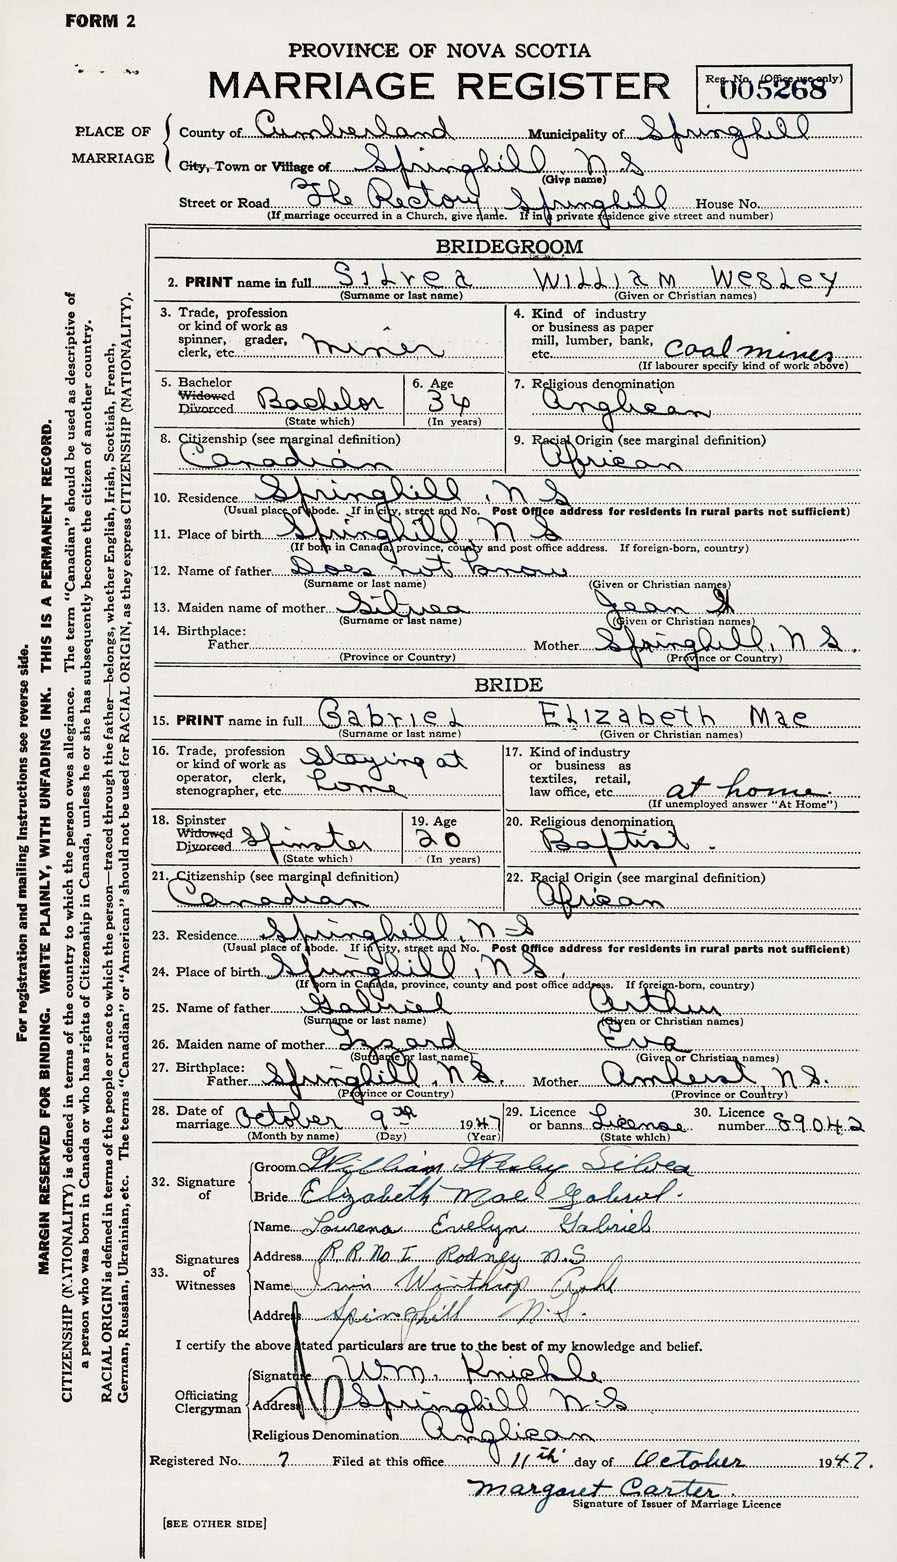 FORM 2
PROVINCE OF NOVA SCOTIA
MARRIAGE REGISTER
Reg. No. (Office use only)
005268
PLACE OF MARRIAGE
County of Cumberland Municipality of Springhill
City, Town or Village of Springhill N S
(Give name)
Street or Road The Rectory, Springhill House No.
(If marriage occurred in a Church, give name. If in a private residence give street and number)
BRIDEGROOM
2. PRINT name in full Silvea William Wesley
(Surname or last name) (Given or Christian names)
3. Trade, profession or kind of work as spinner, grader, clerk, etc. miner
4. Kind of industry or business as paper mill, lumber, bank, etc. coal mines
(If labourer specify kind of work above)
5. Bachelor Widowed Divorced Bachelor
(State which)
6. Age 34
(In years)
7. Religious denomination Anglican
8. Citizenship (see marginal definition) Canadian
9. Racial Origin (see marginal definition) African
10. Residence Springhill, N S
(Usual place of abode. If in city, street and No. Post Office address for residents in rural parts not sufficient)
11. Place of birth Springhill, N S
(If born in Canada, province, county and post office address. If foreign-born, country)
12. Name of father Does not know
(Surname or last name) (Given or Christian names)
13. Maiden name of mother Silvea Jean
(Surname or last name) (Given or Christian names)
14. Birthplace: Father Mother Springhill, N S.
(Province or Country) (Province or Country)
BRIDE
15. PRINT name in full Gabriel Elizabeth Mae
(Surname or last name) (Given or Christian names)
16. Trade, profession or kind of work as operator, clerk, stenographer, etc. Staying at home
17. Kind of industry or business as textiles, retail, law office, etc. at home.
(If unemployed answer "At Home")
18. Spinster Widowed Divorced Spinster
(State which)
19. Age 20
(In years)
20. Religious denomination Baptist.
21. Citizenship (see marginal definition) Canadian
22. Racial Origin (see marginal definition) African
23. Residence Springhill, N S
(Usual place of abode. If in city, street and No. Post Office address for residents in rural parts not sufficient)
24. Place of birth Springhill, N S.
(If born in Canada, province, county and post office address. If foreign-born, country)
25. Name of father Gabriel Arthur
(Surname or last name) (Given or Christian names)
26. Maiden name of mother Izzard Eva
(Surname or last name) (Given or Christian names)
27. Birthplace: Father Springhill, N S. Mother Amherst, N S.
(Province or Country) (Province or Country)
28. Date of marriage October 9th 1947
(Month by name) (Day) (Year)
29. Licence or banns License
(State which)
30. Licence number 89042
32. Signature of
Groom William Wesley Silvea
Bride Elizabeth Mae Gabriel.
33. Signatures of Witnesses
Name Laurena Evelyn Gabriel
Address R.R. No I Rodney N.S
Name Winthrop
Address Springhill N.S.
I certify the above stated particulars are true to the best of my knowledge and belief.
Officiating Clergyman
Signature Wm. Knickle
Address Springhill N.S
Religious Denomination Anglican
Registered No. 7 Filed at this office 11th day of October 1947.
Margaret Carter.
Signature of Issuer of Marriage Licence
[SEE OTHER SIDE]
For registration and mailing instructions see reverse side.
MARGIN RESERVED FOR BINDING. WRITE PLAINLY, WITH UNFADING INK. THIS IS A PERMANENT RECORD.
CITIZENSHIP (NATIONALITY) is defined in terms of the country to which the person owes allegiance. The term "Canadian" should be used as descriptive of
a person who was born in Canada or who has rights of Citizenship in Canada, unless he or she has subsequently become the citizen of another country.
RACIAL ORIGIN is defined in terms of the people or race to which the person—traced through the father—belongs, whether English, Irish, Scottish, French,
German, Russian, Ukrainian, etc. The terms "Canadian" or "American" should not be used for RACIAL ORIGIN, as they express CITIZENSHIP (NATIONALITY).